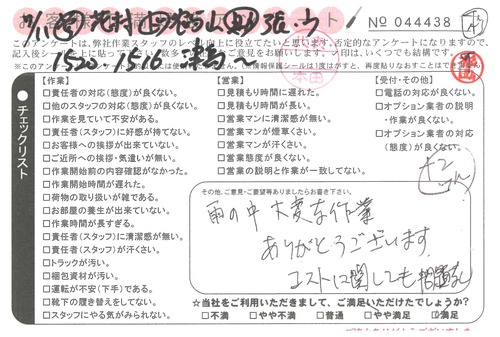 No 044438
このアンケートは、弊社作業スタッフのレベル向上に役立てたいと思います。否定的なアンケートになりますので、
15:20 - 15:10
【作業】
□責任者の対応(態度)が良くない。
□他のスタッフの対応(態度)が良くない。
□作業を見ていて不安がある。
□責任者(スタッフ)に好感が持てない。
□お客様への挨拶が出来ていない。
□ご近所への挨拶・気遣いが無い。
□作業開始前の内容確認がなかった。
□作業開始時間が遅れた。
□荷物の取り扱いが雑である。
□お部屋の養生が出来ていない。
□作業時間が長すぎる。
□責任者(スタッフ)に清潔感が無い。
□責任者(スタッフ)が汗くさい。
□トラックが汚い。
□梱包資材が汚い。
□運転が不安(下手)である。
□靴下の履き替えをしてない。
□スタッフにやる気がみられない。
【営業】
□見積もり時間に遅れた。
□見積もり時間が長い。
□営業マンに清潔感が無い。
□営業マンが煙草くさい。
□営業マンが汗くさい。
□営業態度が良くない。
□営業の説明と作業が一致してない。
【受付・その他】
□電話の対応が良くない。
□オプション業者の説明
・作業が良くない。
□オプション業者の対応
(態度)が良くない。
チェックリスト
その他、ご意見・ご要望等ありましたらお書き下さい。
雨の中大変な作業
ありがとうございます
コストに関しても問題なし
☆当社をご利用いただきまして、ご満足いただけたでしょうか?
□不満 □やや不満 □普通 □やや満足 □満足